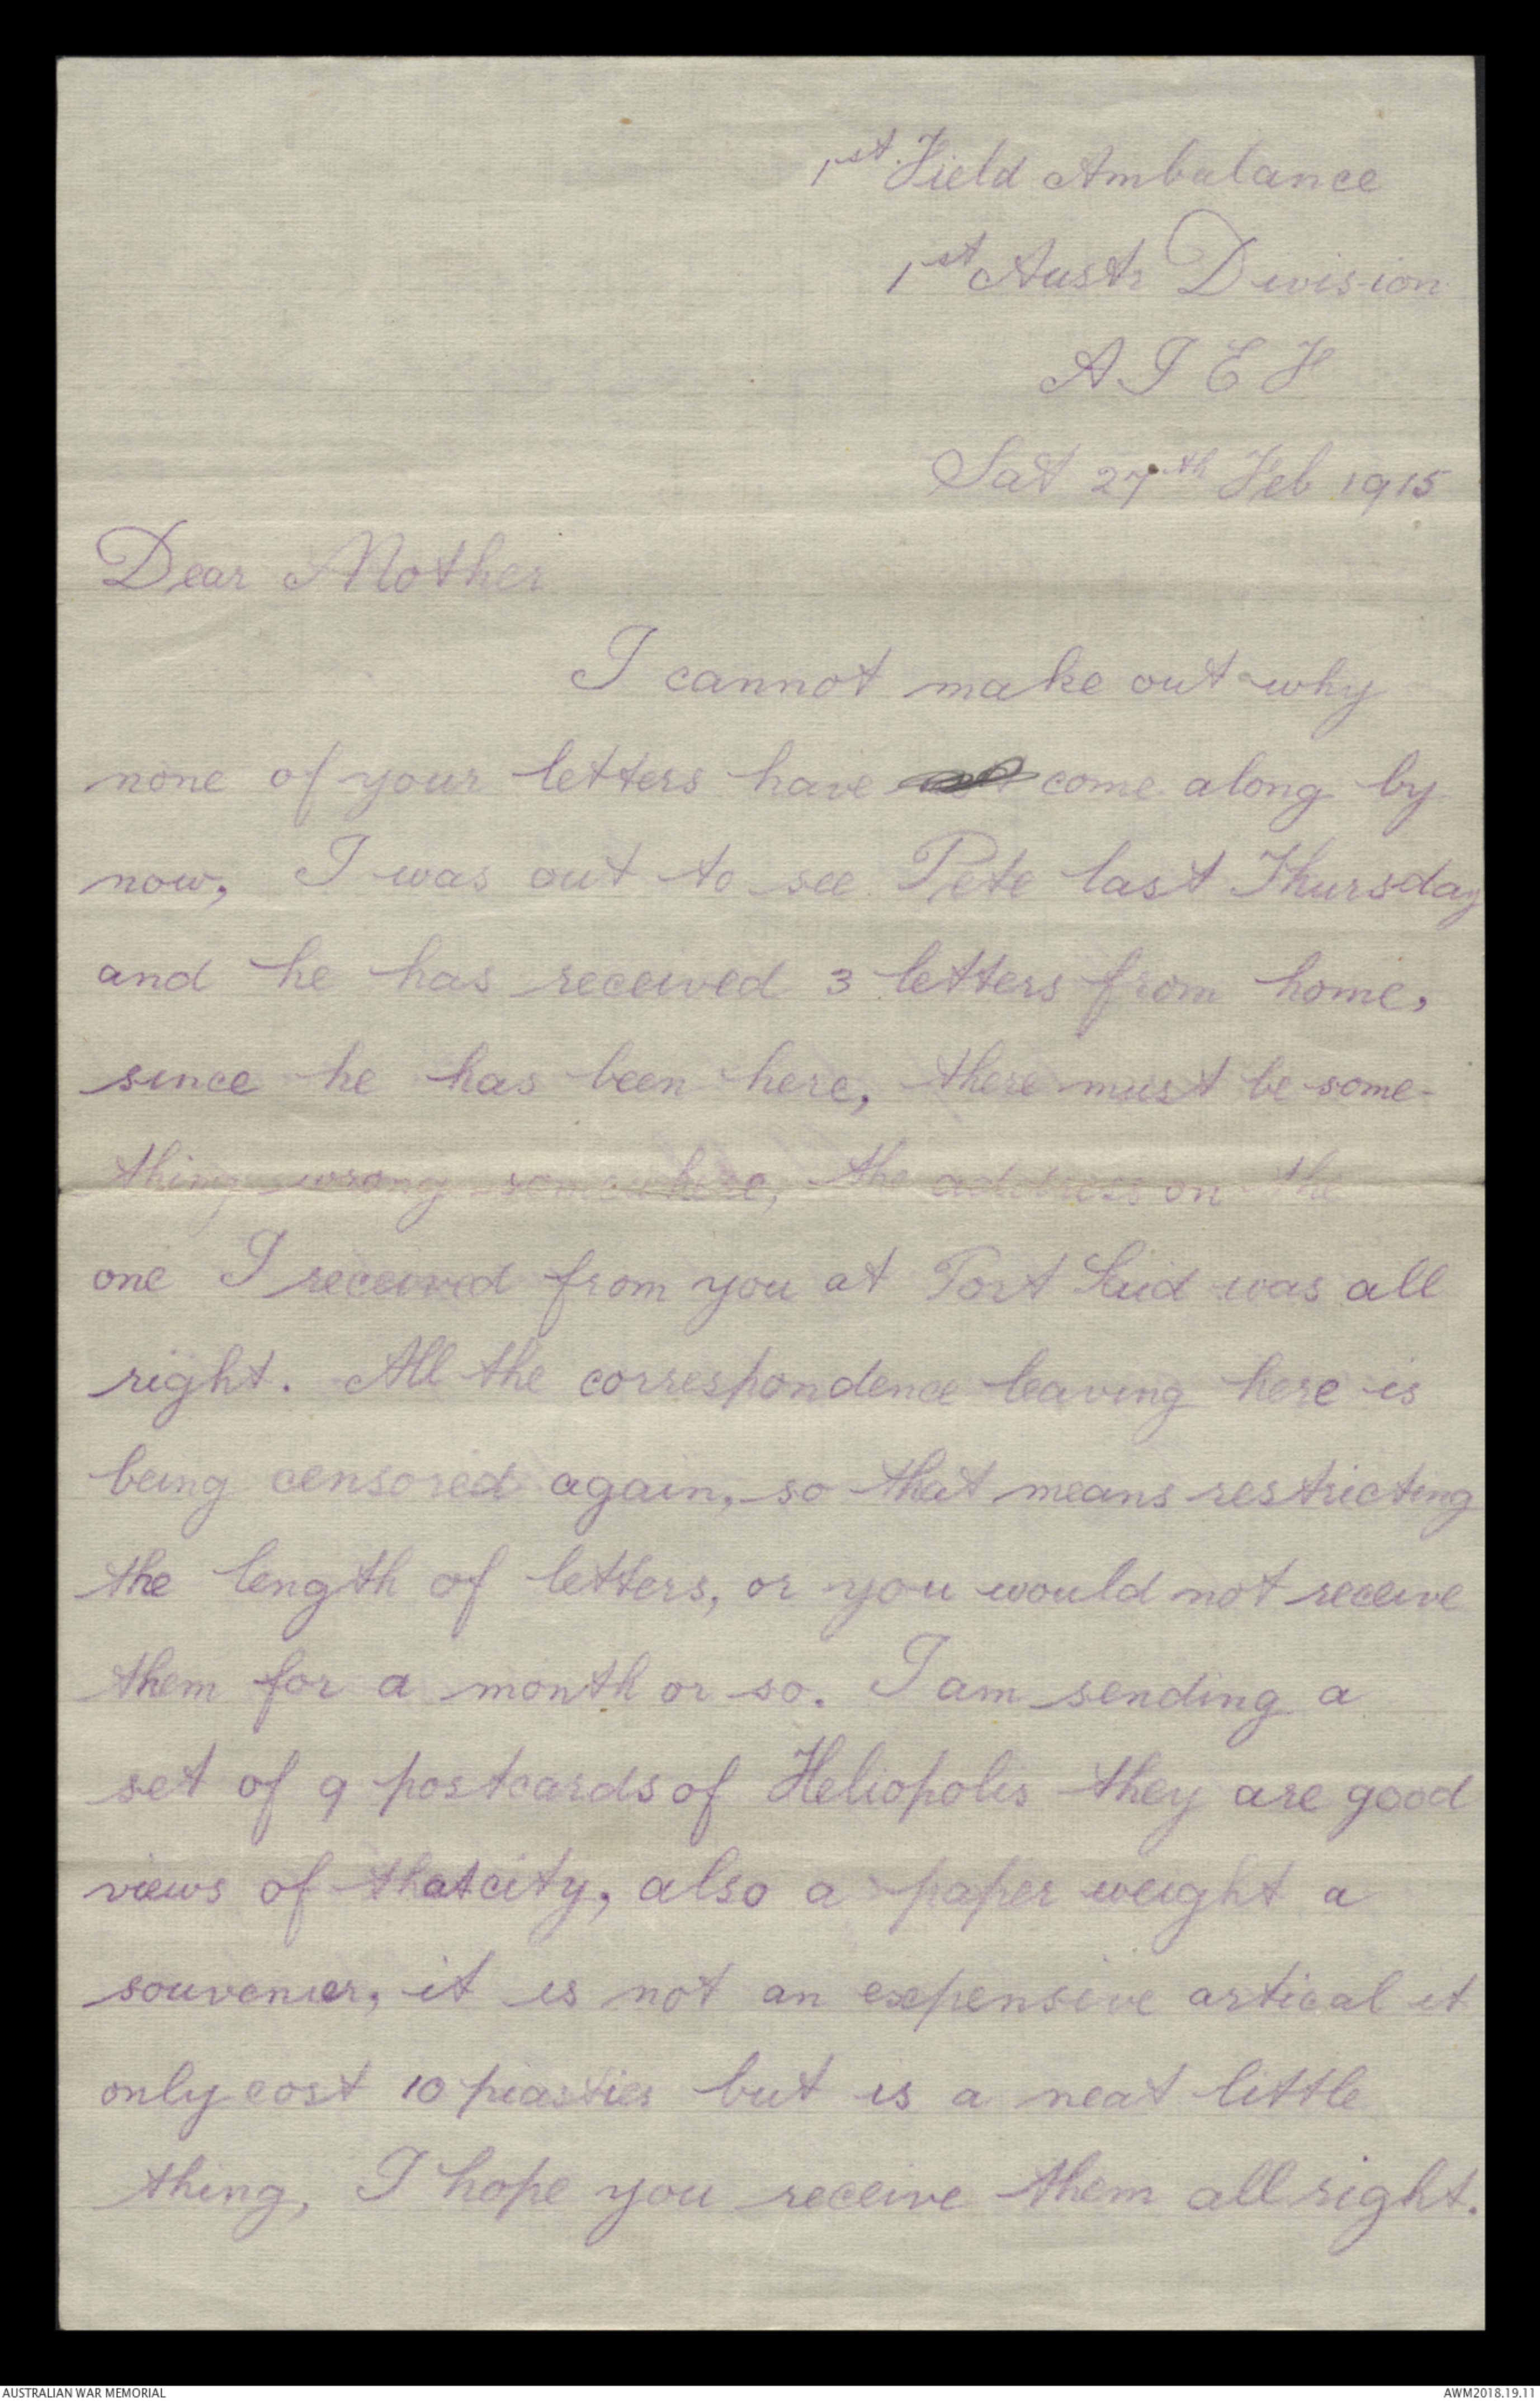 1st Field Ambulance
1st Austr Division
A I E F
Sat 27th Feb 1915
Dear Mother
I cannot make out why
none of your letters have come along by
now, I was out to see Pete last Thursday
and he has received 3 letters from home,
since he has been here, there must be some-
thing wrong somewhere, the address on the
one I received from you at Port Said was all
right. All the correspondence leaving here is
being censored again, so that means restricting
the length of letters, or you would not receive
them for a month or so. I am sending a
set of 9 postcards of Heliopolis they are good
views of that city, also a paper weight a
souvenier, it is not an expensive artical it
only cost 10 piastres but is a neat little
thing, I hope you receive them all right.
AUSTRALIAN WAR MEMORIAL
AWM2018.19.11